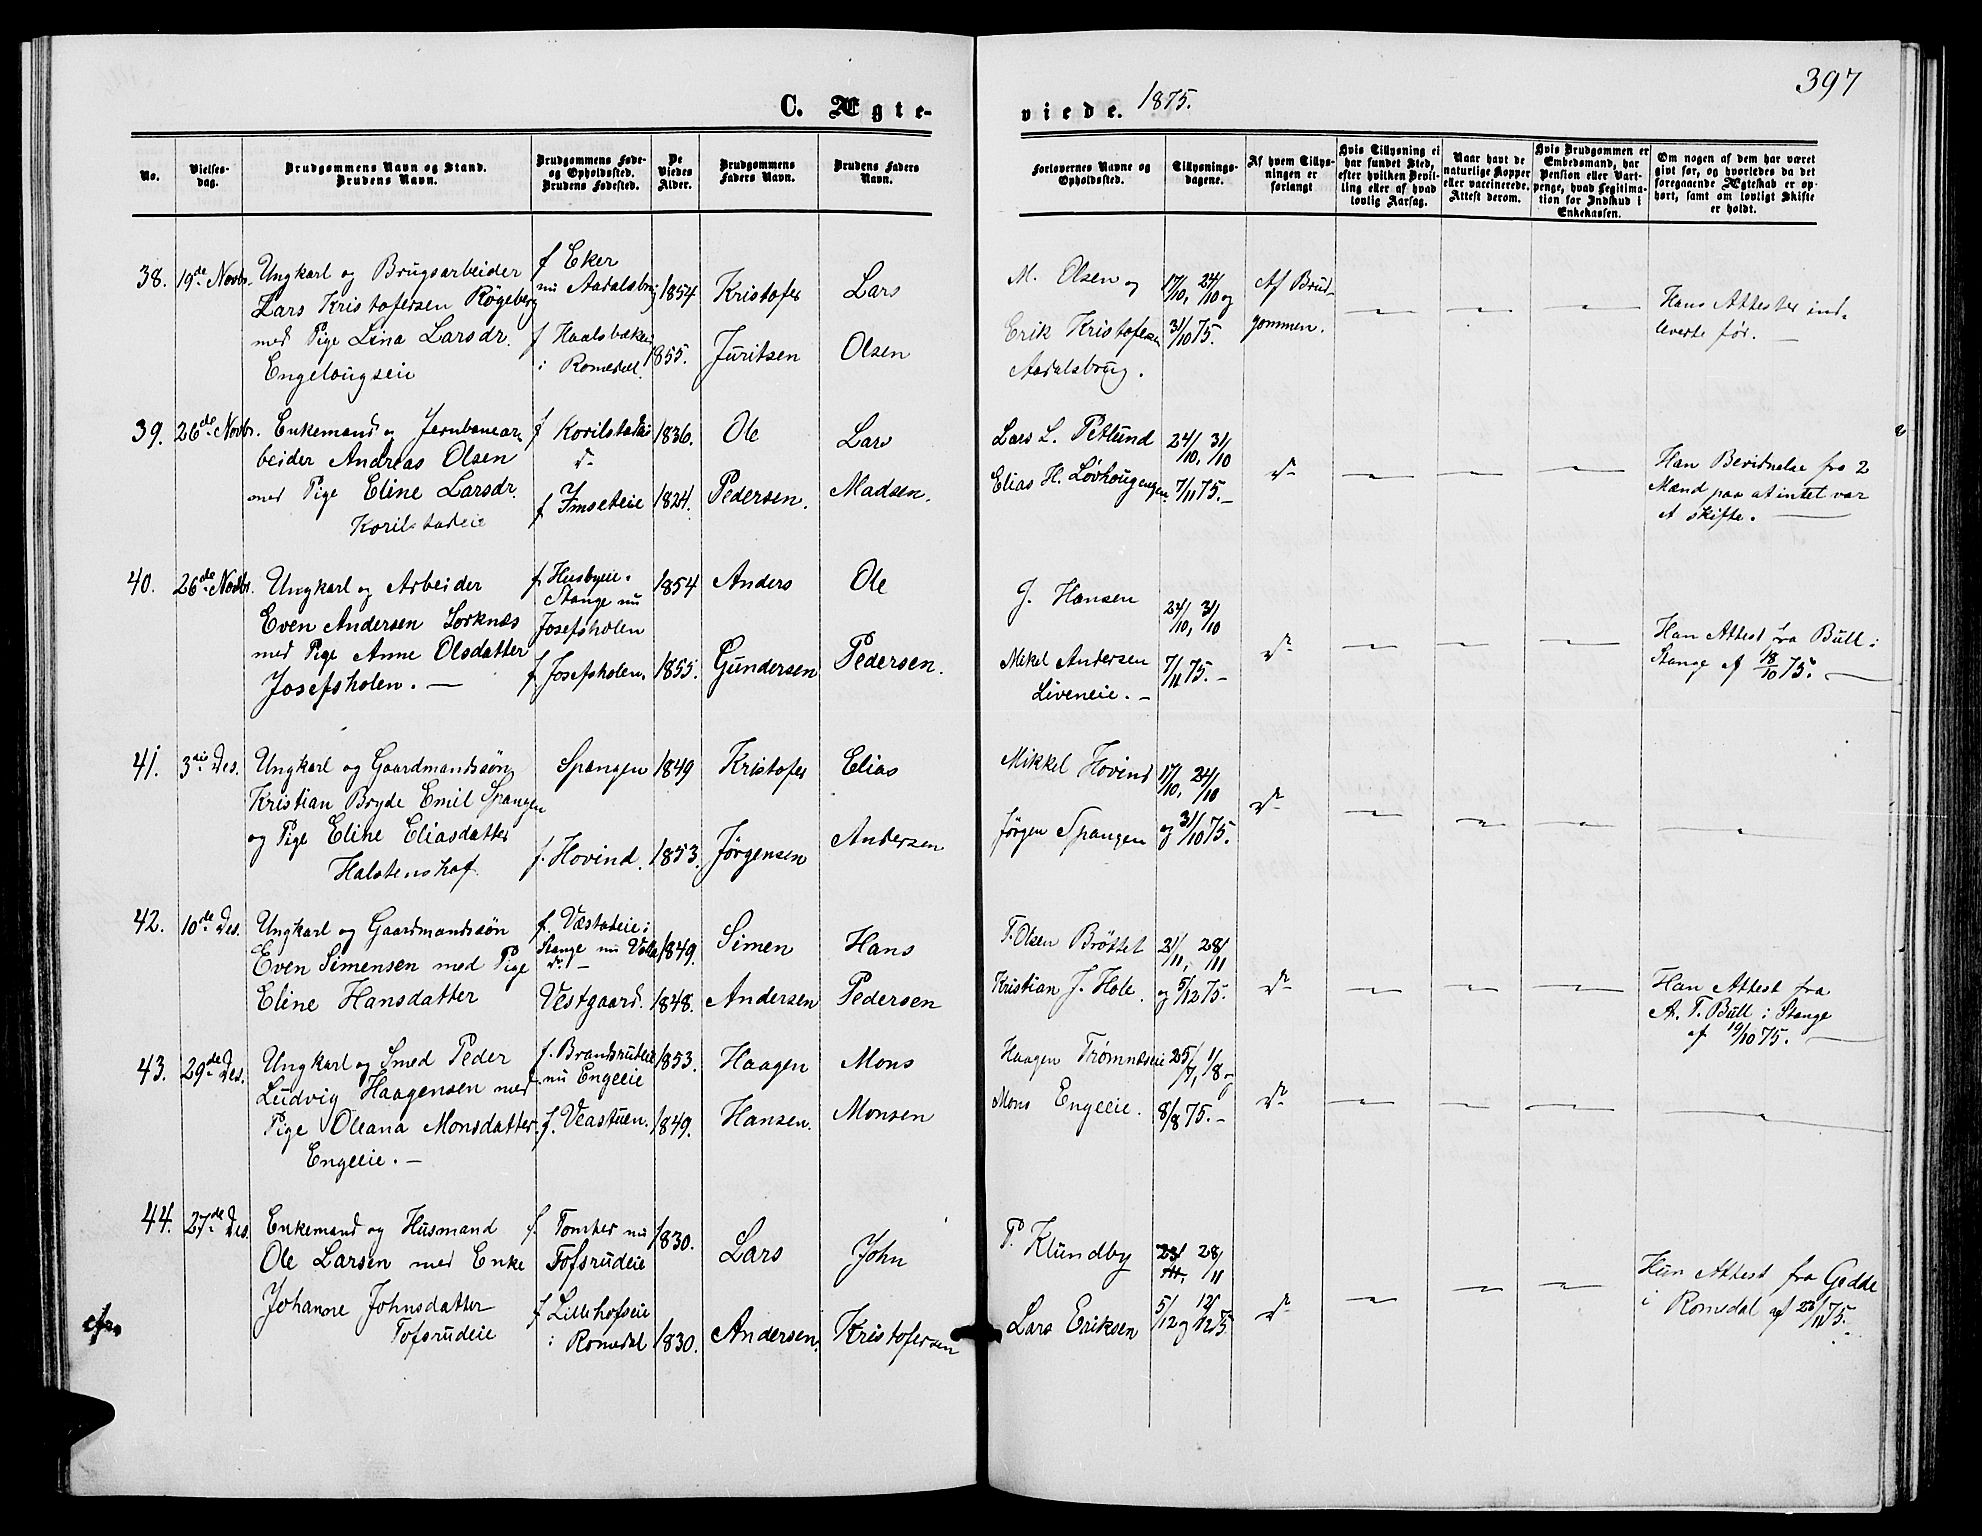 397
C. Ægte-
viede. 1875.
No.
Vielses-
dag.
Brudgommens Navn og Stand.
Brudens Navn.
Brudgommens Føde-
og Opholdssted.
Brudens Fødested.
De
Viedes
Alder.
Brudgommens
Faders Navn.
Brudens Faders
Navn.
Forlovernes Navne og
Opholdssted.
Tillysnings-
dagene.
Af hvem Tillys-
ningen er
forlangt
Hvis Tillysning ei
har fundet Sted,
efter hvilken Bevil-
ling eller af hvad
lovlig Aarsag.
Naar havt de
naturlige Kopper
eller vaccinerede.
Attest derom.
Hvis Brudgommen er
Embedsmand, har
Pension eller Vart-
penge, hvad Legitima-
tion for Indskud i
Enkekassen.
Om nogen af dem har været
givt før, og hvorledes da det
foregaaende Ægteskab er op-
hørt, samt om lovligt Skifte
er holdt.
38. 19de Novbr.
Ungkarl og Brugsarbeider
Lars Kristofersen Røgeberg
med Pige Lina Larsdr.
Engelougseie
f Eker
nu Aadalsbrug
f Haalsbakken
i Romedal.
1854
1855.
Kristofer
Juritsen
Lars
Olsen
M. Olsen og
Erik Kristofersen
Aadalsbrug.
17/10, 24/10 og
31/10 75.
Af Brud-
gommen.
Hans Attester ind-
leverte før. —
39. 26de Novbr.
Enkemand og Jernbanear-
beider Andreas Olsen
med Pige Eline Larsdr.
Korilstadeie
f Korilstadeie
d-
f Imseteie
1836.
1824.
Ole
Pedersen.
Lars
Madsen.
Lars L. Petlund
Elias H. Løvhougengen.
24/10, 31/10
7/11 75.-
d-
Han Bevidnelse fra 2
Mænd paa at intet var
at skifte. —
40. 26de Novbr.
Ungkarl og Arbeider
Even Andersen Sorknæs
med Pige Anne Olsdatter
Josefsholen. —
f. Husbyeie i
Stange nu
Josefsholen
f Josefsholen.
1854
1855.
Anders
Gundersen
Ole
Pedersen.
J. Hansen
Mikel Andersen
Liveneie. -
24/10, 31/10
7/11 75.-
d-
Han Attest fra Bull i
Stange af 18/10 75. —
41. 3die Des.
Ungkarl og Gaardmandssøn
Kristian Bryde Emil Spangen
og Pige Eline Eliasdatter
Halstenshof
Spangen
f. Hovind.
1849
1853.
Kristofer
Jørgensen
Elias
Andersen
Mikkel Hovind
Jørgen Spangen
17/10, 24/10
og 31/10 75.
d-
42. 10de Des.
Ungkarl og Gaardmandssøn
Even Simensen med Pige
Eline Hansdatter
f. Væstadeie i
Stange nu Valle
d. -
Vestgaard.
1849.
1848.
Simen
Andersen
Hans
Pedersen
T. Olsen Brøttet
Kristian J. Hole.
21/11, 28/11
og 5/12 75.
d-
Han Attest fra
A. T. Bull i Stange
af 19/10 75. —
43. 29de Des.
Ungkarl og Smed Peder
Ludvig Haagensen med
Pige Oleana Monsdatter
Engeeie. —
f. Brandrudeie
nu Engeeie
f. Veastuen.
1853.
1849.
Haagen
Hansen.
Mons
Monsen
Haagen Trømnæseie
Mons Engeeie.
25/7, 1/8 -
8/8 75.-
d-
44. 27de Des.
Enkemand og Husmand
Ole Larsen med Enke
Johanne Johnsdatter
Tofsrudeie
f. Tomter nu
Tofsrudeie
f Lillehofseie
i Romedal
1830.
1830.
Lars
Andersen.
John
Kristofersen
P. Klundby
Lars Eriksen
28/11
5/12 og 12/12 75
d-
Hun Attest fra Gedde
i Romedal af 23/11 75. -
cfr.